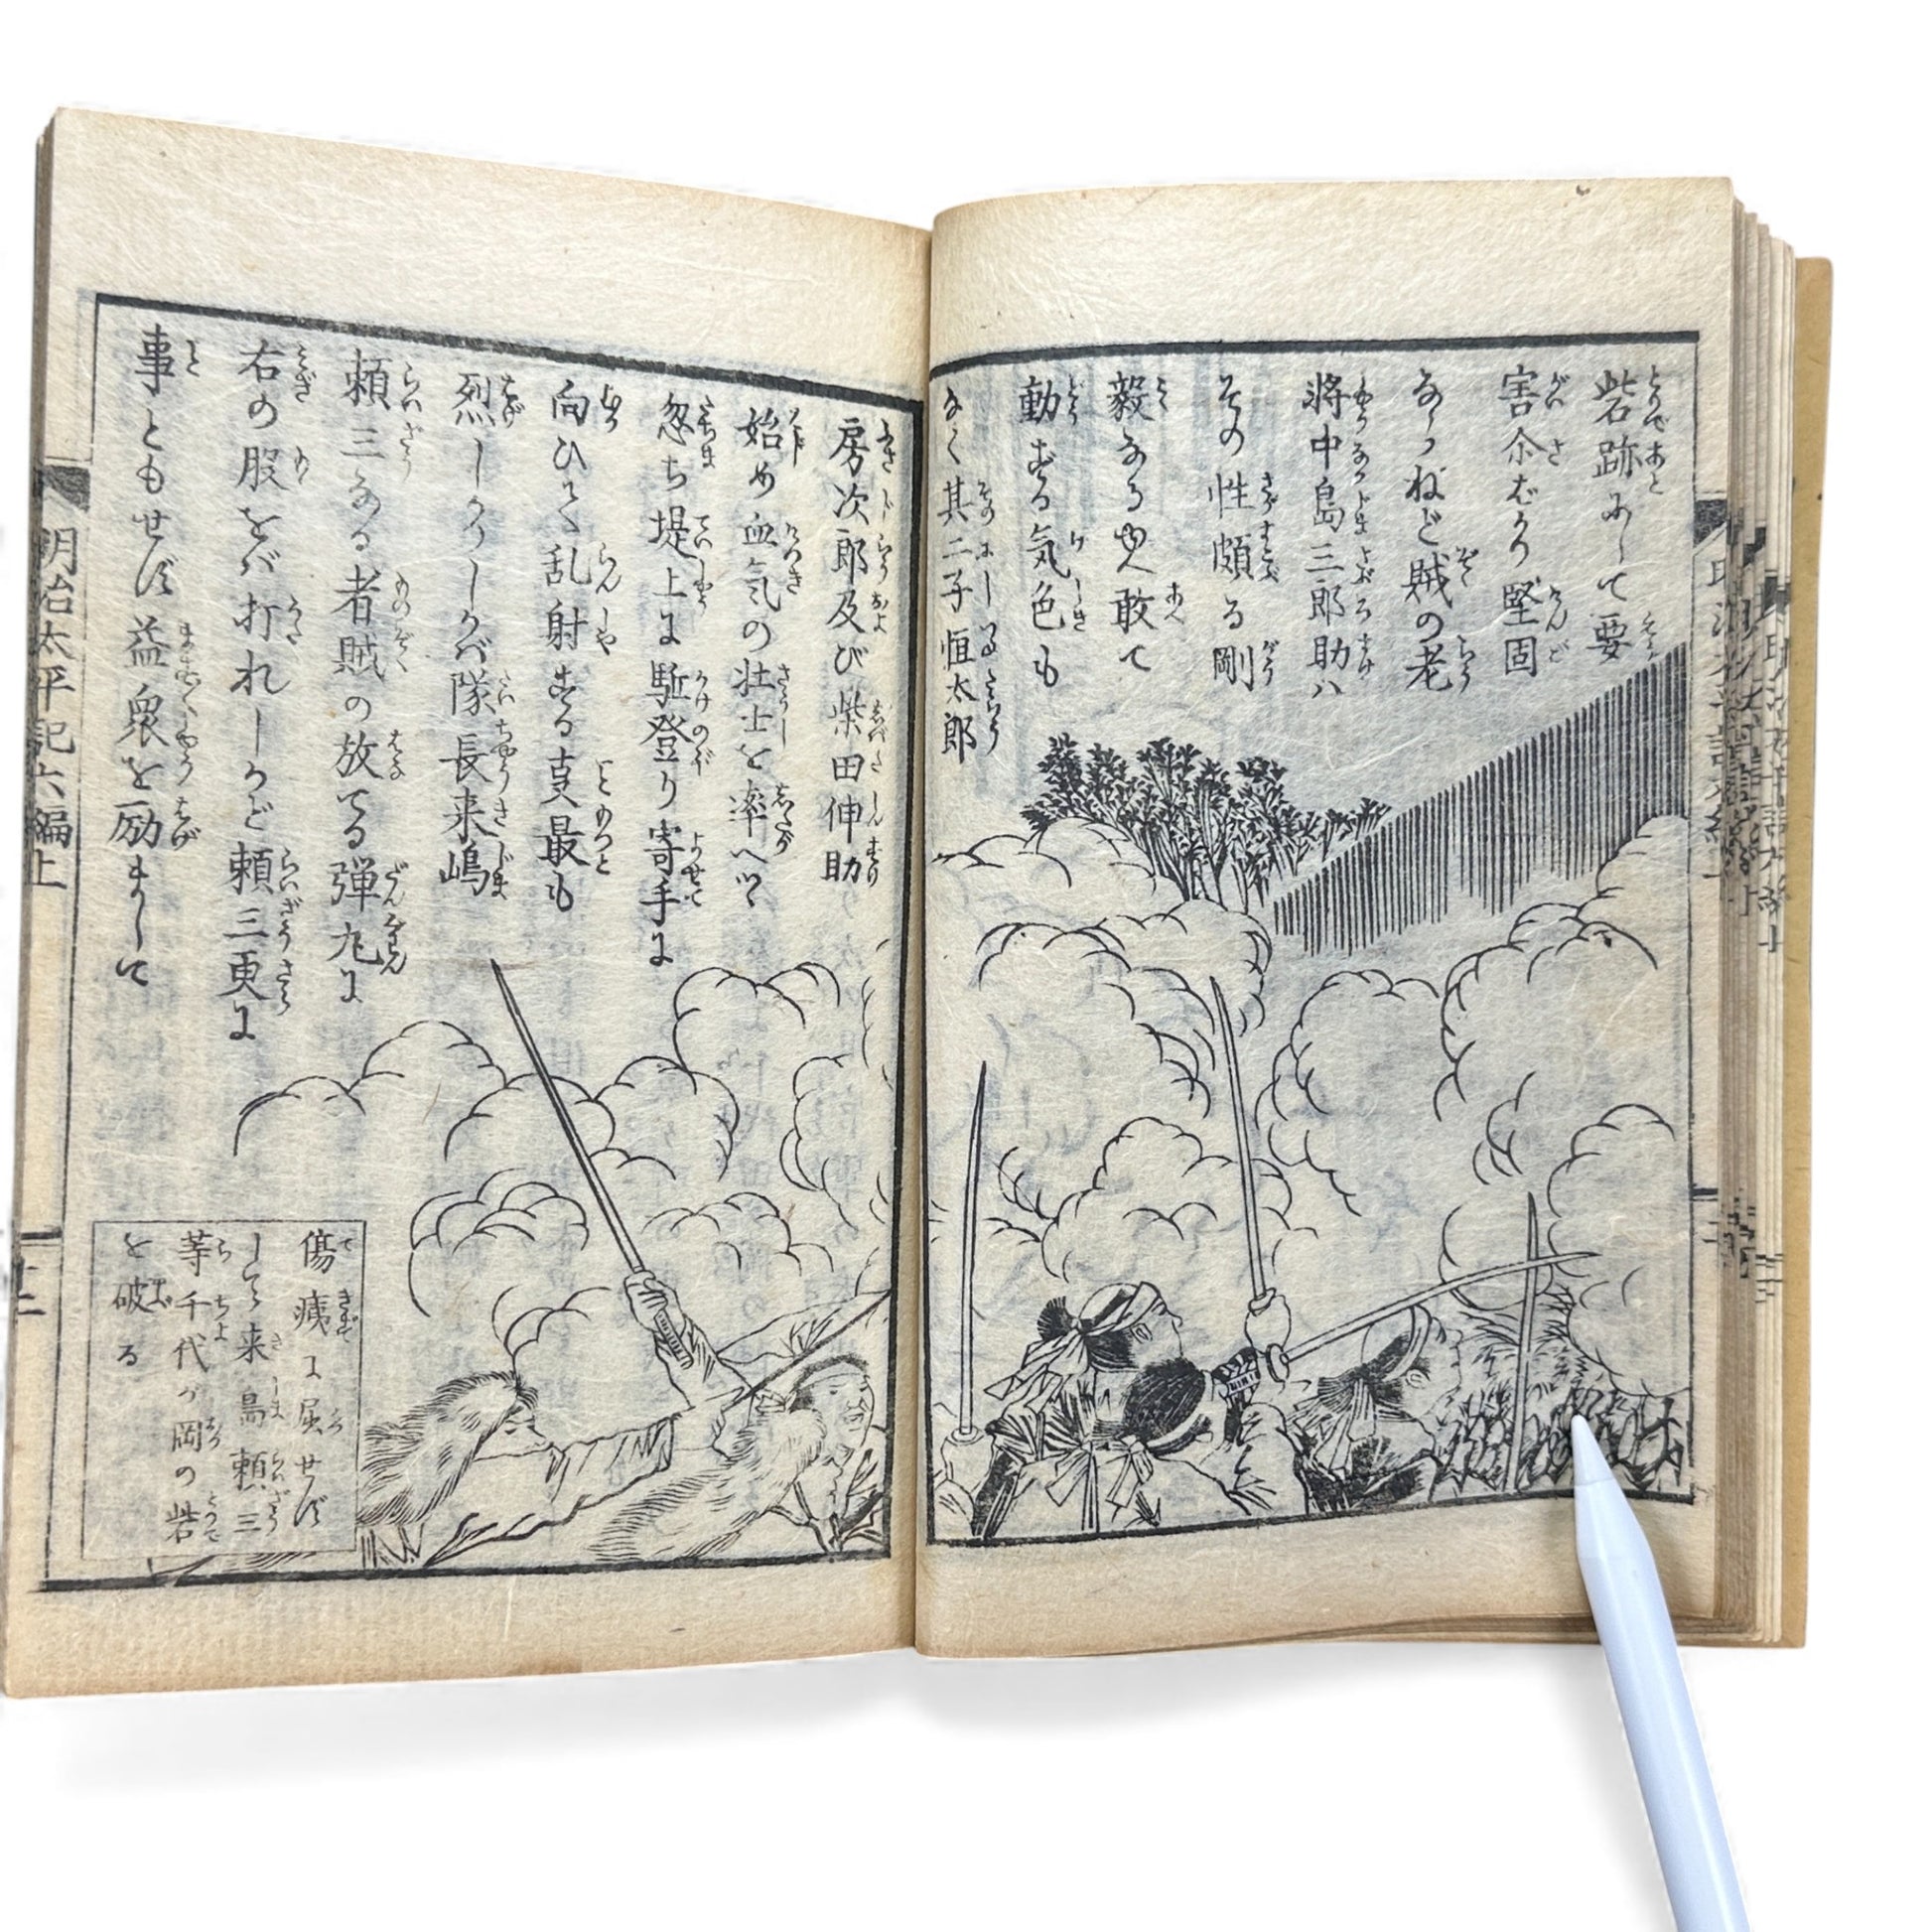 砦跡にして要
害尒ばかり堅固
ならねど賊の老
將中島三郎助ハ
その性頗る剛
毅なるゆへ敢て
動ずる気色も
なく其二子恒太郎
房次郎及び柴田伸助
始め血気の壮士を率へて
忽ち堤上に駈登り寄手に
向ひて乱射する叓最も
烈しかりしかバ隊長来嶋
頼三なる者賊の放てる弾丸に
右の股をバ打れしかど頼三更に
事ともせず益衆を励まして
傷痍に屈せず
して来島頼三
等千代が岡の砦
を破る
明治太平記六編上